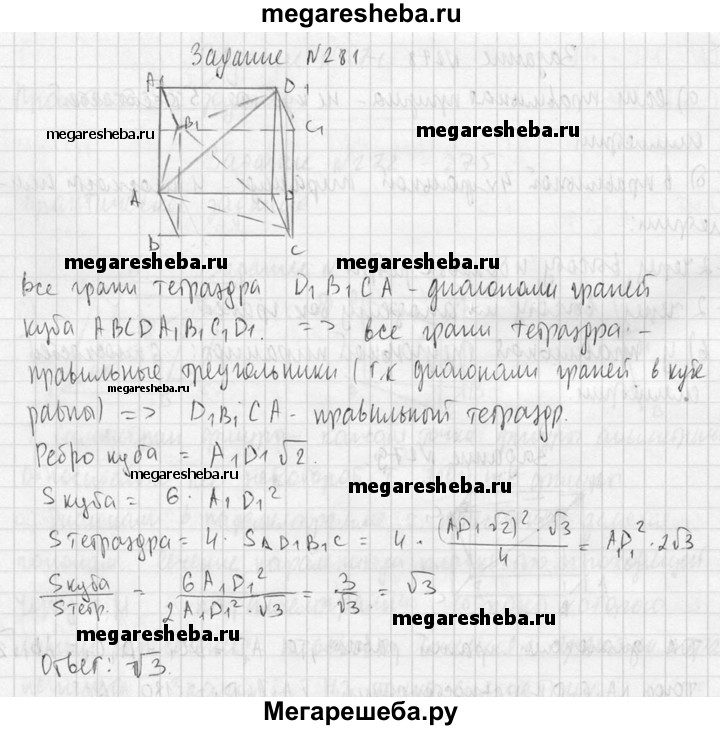 megaresheba.ru
Задание №281
A1 D1
megaresheba.ru B1 C1 megaresheba.ru
A D
B C
megaresheba.ru megaresheba.ru
все грани тетраэдра D1B1CA - диагонали граней
куба ABCDA1B1C1D1. => все грани тетраэдра -
правильные треугольники (т.к диагонали граней в кубе
megaresheba.ru
равны) => D1B1CA - правильный тетраэдр.
Ребро куба = A1D1√2.
megaresheba.ru
S куба = 6 · A1D1² megaresheba.ru
S тетраэдра = 4 · S AD1B1C = 4 · (AD1√2)² · √3 / 4 = A1D1² · 2√3
Sкуба / Sтетр. = 6A1D1² / 2A1D1² · √3 = 3 / √3 = √3
megaresheba.ru megaresheba.ru
Ответ: √3.
Мегарешеба.ру